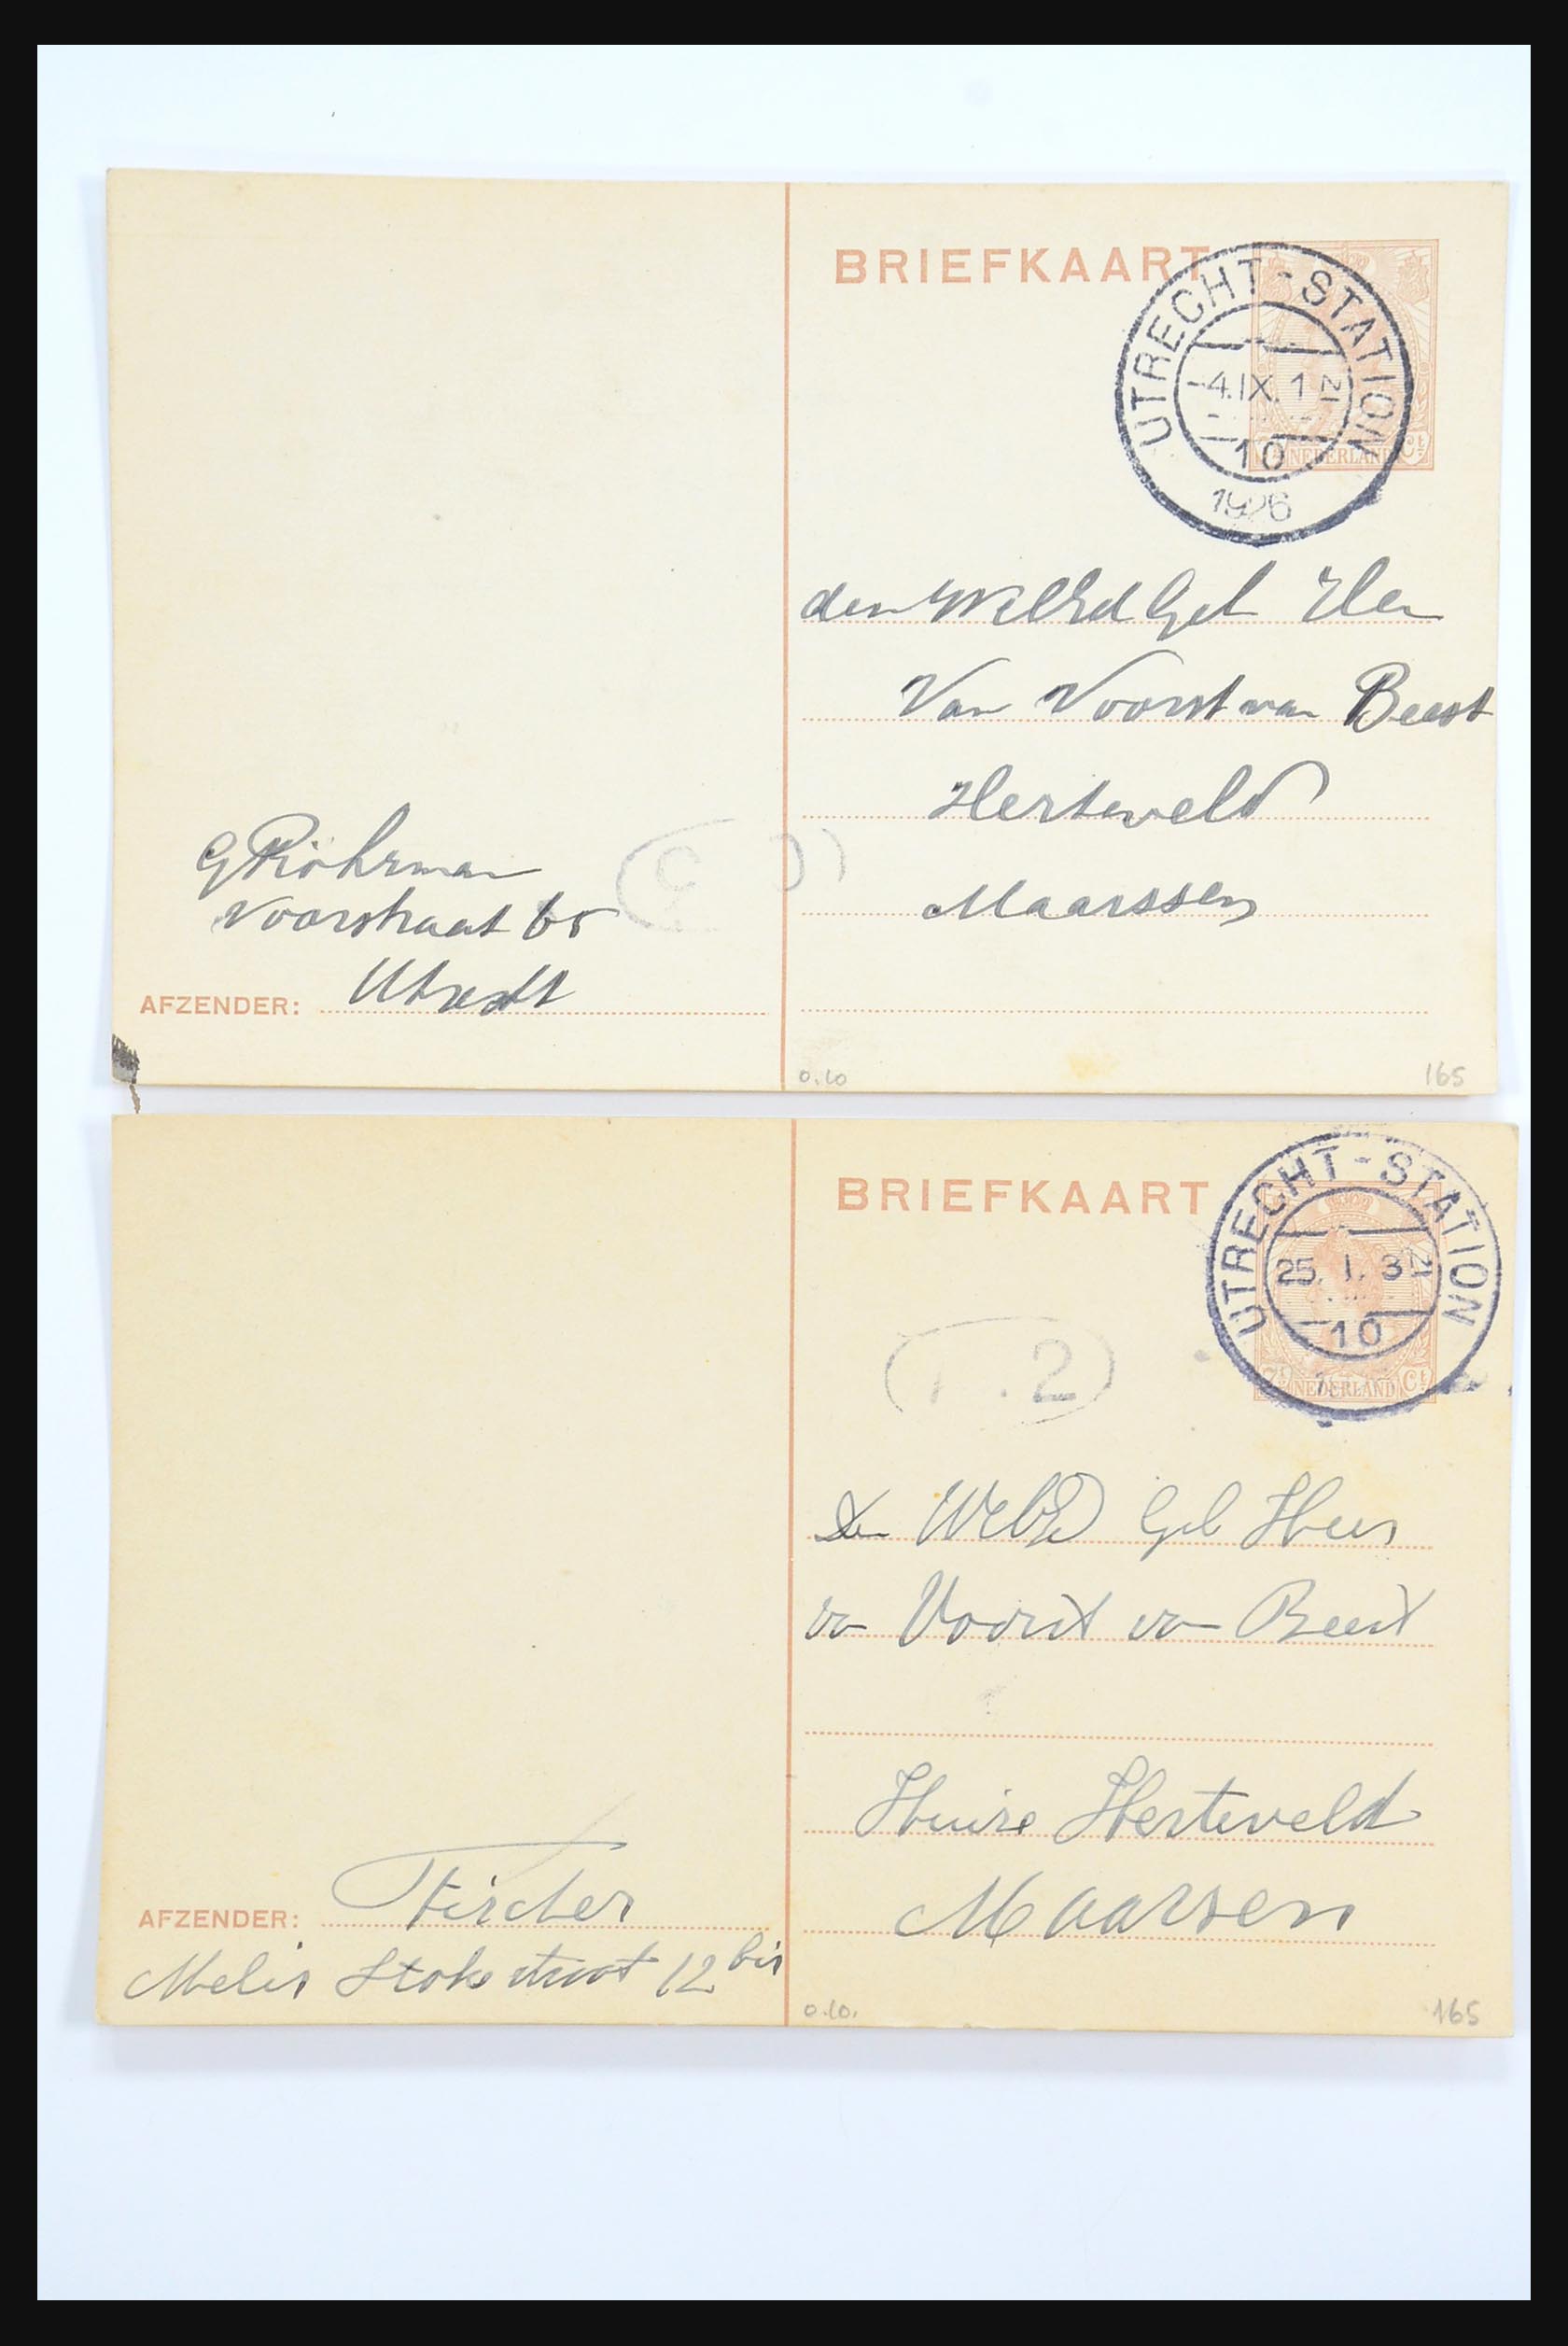 BRIEFKAART
UTRECHT-STATION
-4.IX.1 N
10
1926
NEDERLAND Ct
den WelEd Geb Heer
Van Voorst van Beest
Herteveld
Maarssen
G Röhrman
Voorstraat 65
Utrecht
AFZENDER:
0.10
165
BRIEFKAART
UTRECHT-STATION
25. I. 3 N
10
NEDERLAND Ct
2
Den WelEd Geb Heer
van Voorst van Beest
Huize Herteveld
Maarsen
AFZENDER: Fischer
Melis Stokestraat 12 bis
0.10.
165